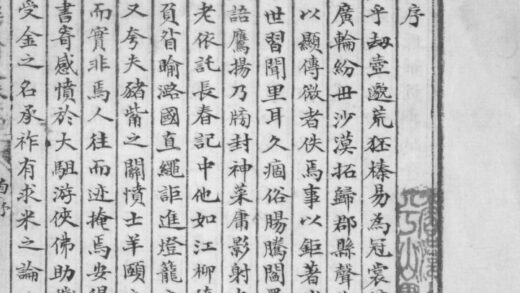 序
乎劫壺邈荒狂榛易為冠裳
廣輪紛毌沙漠拓歸郡縣聲
以顯傳微者佚焉事以鉅著
世習聞里耳久痼俗腸騰閣
語鷹揚乃牓封神菜庸影射
老依託長春記中他如江柳
負省喻潞國直繩詎進燈籠
又夸夫豬觜之關憤士羊頤
而實非焉人往而迹掩焉安得
書寄感憤於大駔游俠佛助
受金之名承祚有求米之論